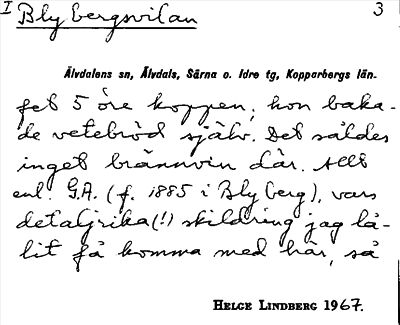 I Blybergsvilan 3
Älvdalens sn, Älvdals, Särna o. Idre tg, Kopparbergs län.
fet 5 öre koppen, hon baka-
de vetebröd själv. Det såldes
inget brännvin där. Allt
enl. G.A. (f. 1885 i Blyberg), vars
detaljrika(!) skildring jag lå-
lit få komma med här, så
HELGE LINDBERG 1967.